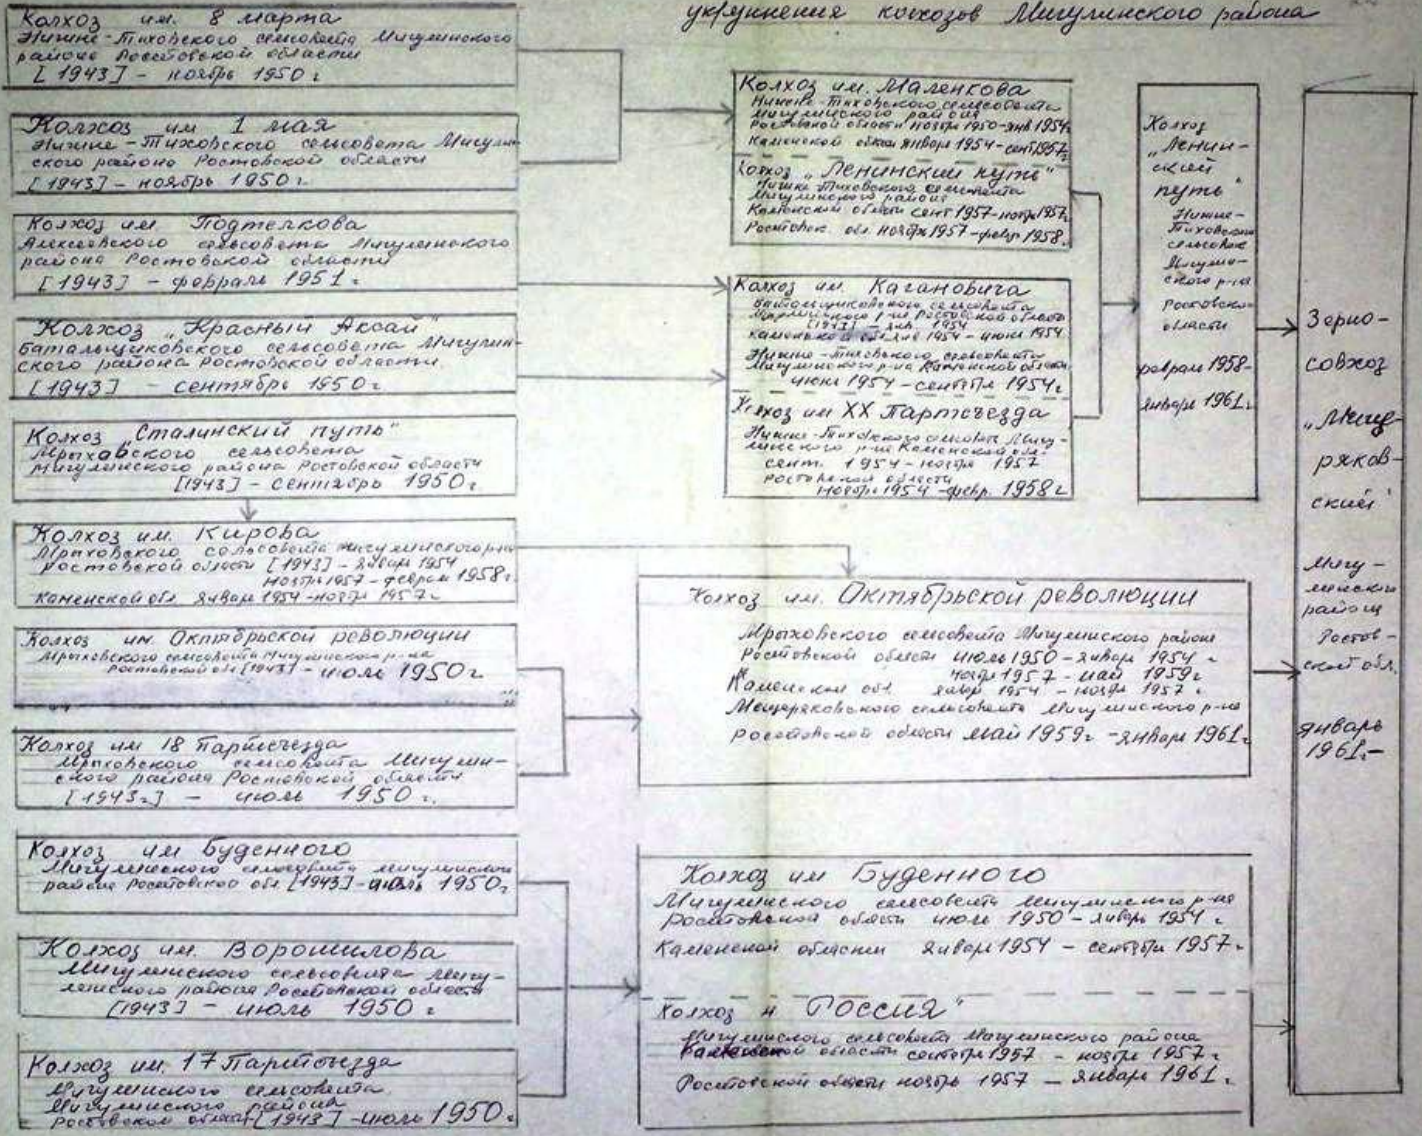 укрупнения колхозов Мигулинского района
Колхоз им. 8 марта
Нижне-Тиховского сельсовета Мигулинского
района Ростовской области
[1943] - ноябрь 1950 г
Колхоз им 1 мая
Нижне-Тиховского сельсовета Мигулин-
ского района Ростовской области
[1943] - ноябрь 1950 г.
Колхоз им Подтелкова
Алексеевского сельсовета Мигулинского
района Ростовской области
[1943] - февраль 1951 г.
Колхоз „Красный Аксай"
Батальщиковского сельсовета Мигулин-
ского района Ростовской области.
[1943] - сентябрь 1950 г
Колхоз „Сталинский путь"
Мрыховского сельсовета
Мигулинского района Ростовской области
[1943] - сентябрь 1950 г
Колхоз им. Кирова
Мрыховского сельсовета Мигулинского р-на
Ростовской области [1943] - январь 1954
ноябрь 1957 - феврал 1958 г
Каменской обл январь 1954 - ноябрь 1957 г
Колхоз им. Октябрьской революции
Мрыховского сельсовета Мигулинского р-на
Ростовской обл [1943] - июль 1950 г
Колхоз им 18 Партсъезда
Мрыховского сельсовета Мигулин-
ского района Ростовской области
[1943 г] - июль 1950 г.
Колхоз им Буденного
Мигулинского сельсовета Мигулинского
района Ростовской обл [1943] - июль 1950 г
Колхоз им. Ворошилова
Мигулинского сельсовета Мигу-
линского района Ростовской области
[1943] - июль 1950 г
Колхоз им. 17 Партсъезда
Мигулинского сельсовета
Мигулинского района
Ростовской области [1943] - июль 1950 г
Колхоз им. Маленкова
Нижне-Тиховского сельсовета
Мигулинского района
Ростовской области ноябрь 1950 - янв 1954
Каменской области январь 1954 - сент 1957
Колхоз „Ленинский путь"
Нижне Тиховского сельсовета
Мигулинского района
Каменской области сент 1957 - ноябрь 1957 г
Ростовск. обл. ноябрь 1957 - февр 1958.
Колхоз им. Кагановича
Батальщиковского сельсовета
Мигулинского р-на Ростовской области
[1943] - янв. 1954
Каменской 1954 - июнь 1954
Нижне-Тиховского сельсовета
Мигулинского р-на Каменской области
июнь 1954 - сентябрь 1954 г
Колхоз им XX Партсъезда
Нижне-Тиховского сельсовета Мигу-
линского р-на Каменской обл-
сент. 1954 - ноябрь 1957
Ростовской области
ноябрь 1954 - февр. 1958 г
Колхоз им. Октябрьской революции
Мрыховского сельсовета Мигулинского района
Ростовской области июль 1950 - январь 1954 г
ноябрь 1957 - май 1959 г
Каменской обл. январ 1954 - ноябрь 1957 г
Мещеряковского сельсовета Мигулинского р-на
Ростовской области май 1959 г - январь 1961 г
Колхоз им Буденного
Мигулинского сельсовета Мигулинского р-на
Ростовской области июль 1950 - январь 1954 г
Каменской области январь 1954 - сентябрь 1957 г
Колхоз „Россия"
Мигулинского сельсовета Мигулинского района
Каменской области сентябрь 1957 - ноябрь 1957 г
Ростовской области ноябрь 1957 - январь 1961 г.
Колхоз
„Ленин-
ский
путь"
Нижне-
Тиховский
сельсовет
Мигулин-
ского р-на
Ростовской
области
феврал 1958 -
январь 1961 г.
Зерно-
совхоз
„Меще-
ряков-
ский"
Мигу-
линский
район
Ростов-
ской обл.
январь
1961 -